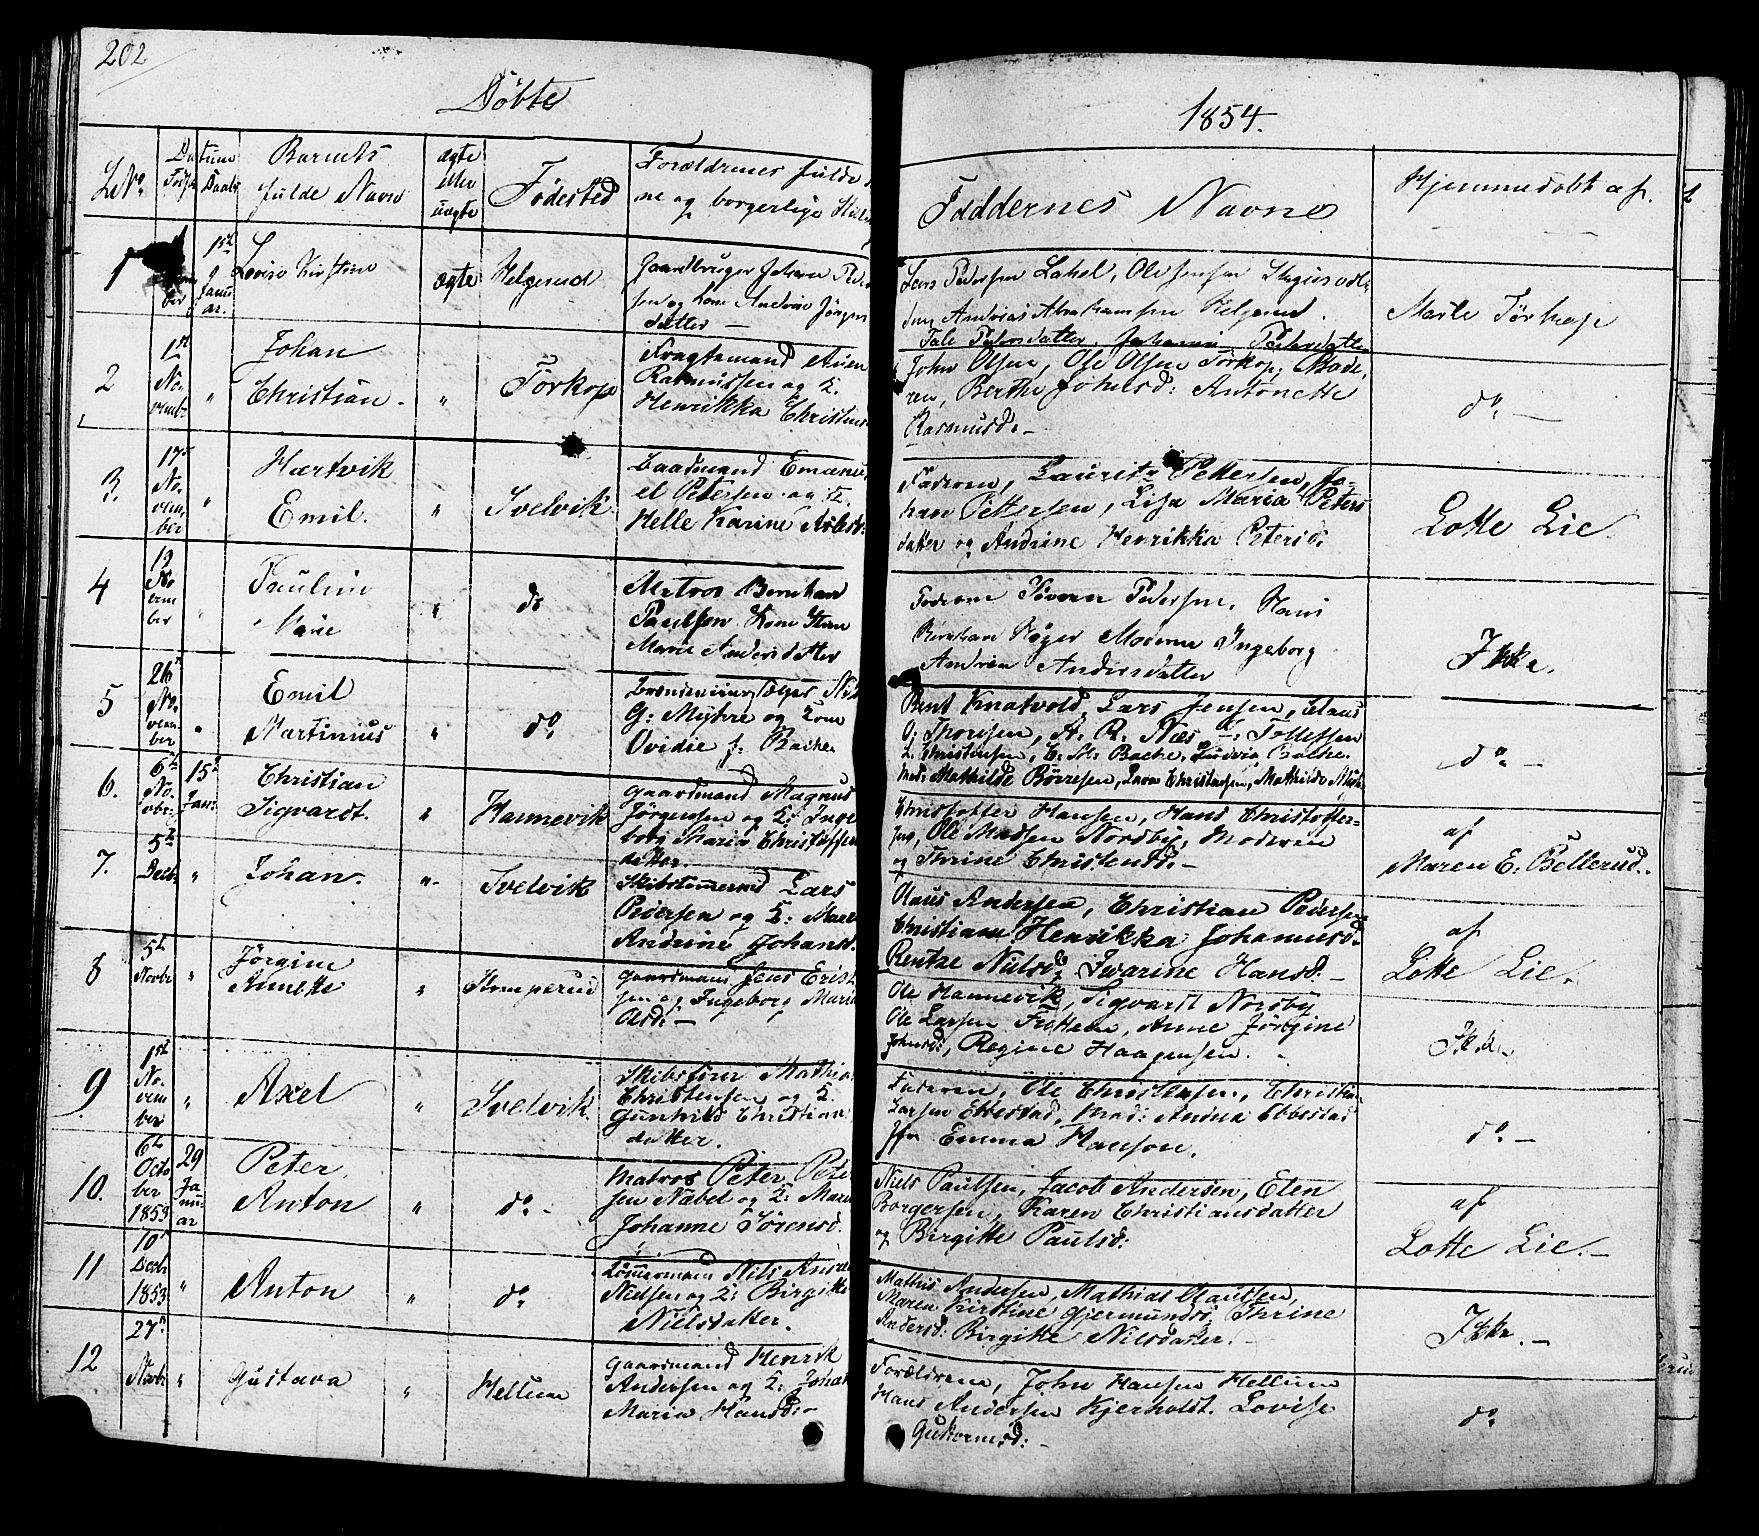 202
Döbte
1854.
LNo
Datum
Föds. Daab.
Barnets
fulde Navn
ægte
eller
uægte
Födested
Forældrenes fulde
ne og borgerlige
Faddernes Navne
Hjemmedöbt af.
1
ber
1ste
Januar.
Lovise Kirstine
ægte
Helgerud
Gaardbruger Johan Peder
sen og Kone Andrine Jörgens
datter —
Lars Pedersen Lahel, Ole Jensen
Andreas Abrahamsen Helgerud.
Tale Pedersdatter. Johanne Pedersdatter
Marte Törkop
2
1st
No.
vembr
"
Johan
Christian.
"
Törkop
Fragtemand Auen
Rasmussen og K.
Henrikka Christens
John Olsen, Ole Olsen Törkop, Mode,
ren, Berthe Johnsd: Antonette
Rasmusd: —
do. —
3.
17de
No.
vem
ber
"
Hartvik
Emil.
"
Svelvik
Baadsmand Emanu
el Petersen og K.
Helle Karine Aslaks:
Faderen, Lauritz Pettersen, Jo-
han Pettersen, Lisa Maria Peters
datter og Andrine Henrikka Petersd:
Lotte Lie.
4
19
No
vem
ber
"
Pauline
Marie
"
do
Matros Bernhard
Paulsen Kone
Marie Andersdatter
Faderen Sören Pedersen, Hans
Bernhard Röger Moderen Ingeborg
Andrea Andersdatter
Ikke.
5
26
No
vem
ber
"
Emil
Martinius
"
do.
Brændeviinsælger Nils
G: Myhre og Kone
Ovidie f. Bache
Bent Knatvold, Lars Jensen, Claus
O; Thorisen, A. R. Næs Tollefsen
L. Christensen, C. M. Bache, Ludvig Bache.
Mad: Mathilde Börresen, Lava Christensen, Mathilde
do. —
6.
6te
No.
vbr.
15de
Janr.
Christian
Sigvardt.
"
Hannevik
Gaardmand Magnus
Jörgensen og K: Inge
borg Maria Christoffers
datter.
Christoffer Hansen, Hans Christoffer-
sen, Ole Madsen Nordby, Moderen
og Thrine Christensd: —
af
Maren E. Bellerud.
7.
5te
Decbr
"
Johan.
"
Svelvik
Skibstömmermd Lars
Pedersen og K: Maren
Andrine Johansd.
Claus Andersen, Christian Pedersen
Christiane Henrikka Johannesd.
Rentze Nielsd, Swarine Hansd. —
af
Lotte Lie.
8
5te
Novbr
"
Jörgine
Annette
"
Stomperud
Gaardmand Jens Erik
sen og Ingeborg Maria
Olsd: —
Ole Hannevik, Sigvardt Nordby
Ole Larsen Frotten, Anne Jörgine
Johnsd:, Regine Haagensen.
Ikke.
9
1st
No.
vem
ber
"
Axel
"
Svelvik
Skibsförer Mathias
Christensen og K.
Gunhild Christian
datter.
Faderen, Ole Christensen, Christian
Larsen Ebbestad, Mad: Andrea Ebbestad
Jfr. Emma Hanson.
do. —
10.
6te
Octo
ber
1853
29
Ja
nu-
ar
Peter
Anton
"
do. —
Matros Peter Peter
sen Næbel og K: Maren
Johanne Sörensd.
Niels Paulsen, Jacob Andersen, Eten
Borgersen, Karen Christiansdatter
og Birgitte Paulsd:
af
Lotte Lie. —
11
10de
Decbr
1853
"
Anton
"
do.
Tömmermand Nils Andre
Nielsen og K: Birgitte
Nielsdatter.
Mathis Andersen, Mathias Clausen,
Maren Kirstine Gjermundsd, Thrine
Andersd: Birgitte Nilsdatter. —
Ikke. —
12
27de
Novbr
"
Gustava
"
Hellum
Gaardmand Henrik
Andersen og K: Johan
Maria Hansd: —
Forældrene, John Hansen Hellum
Hans Andersen Kjerholst. Lovise
Guttormsd: —
do